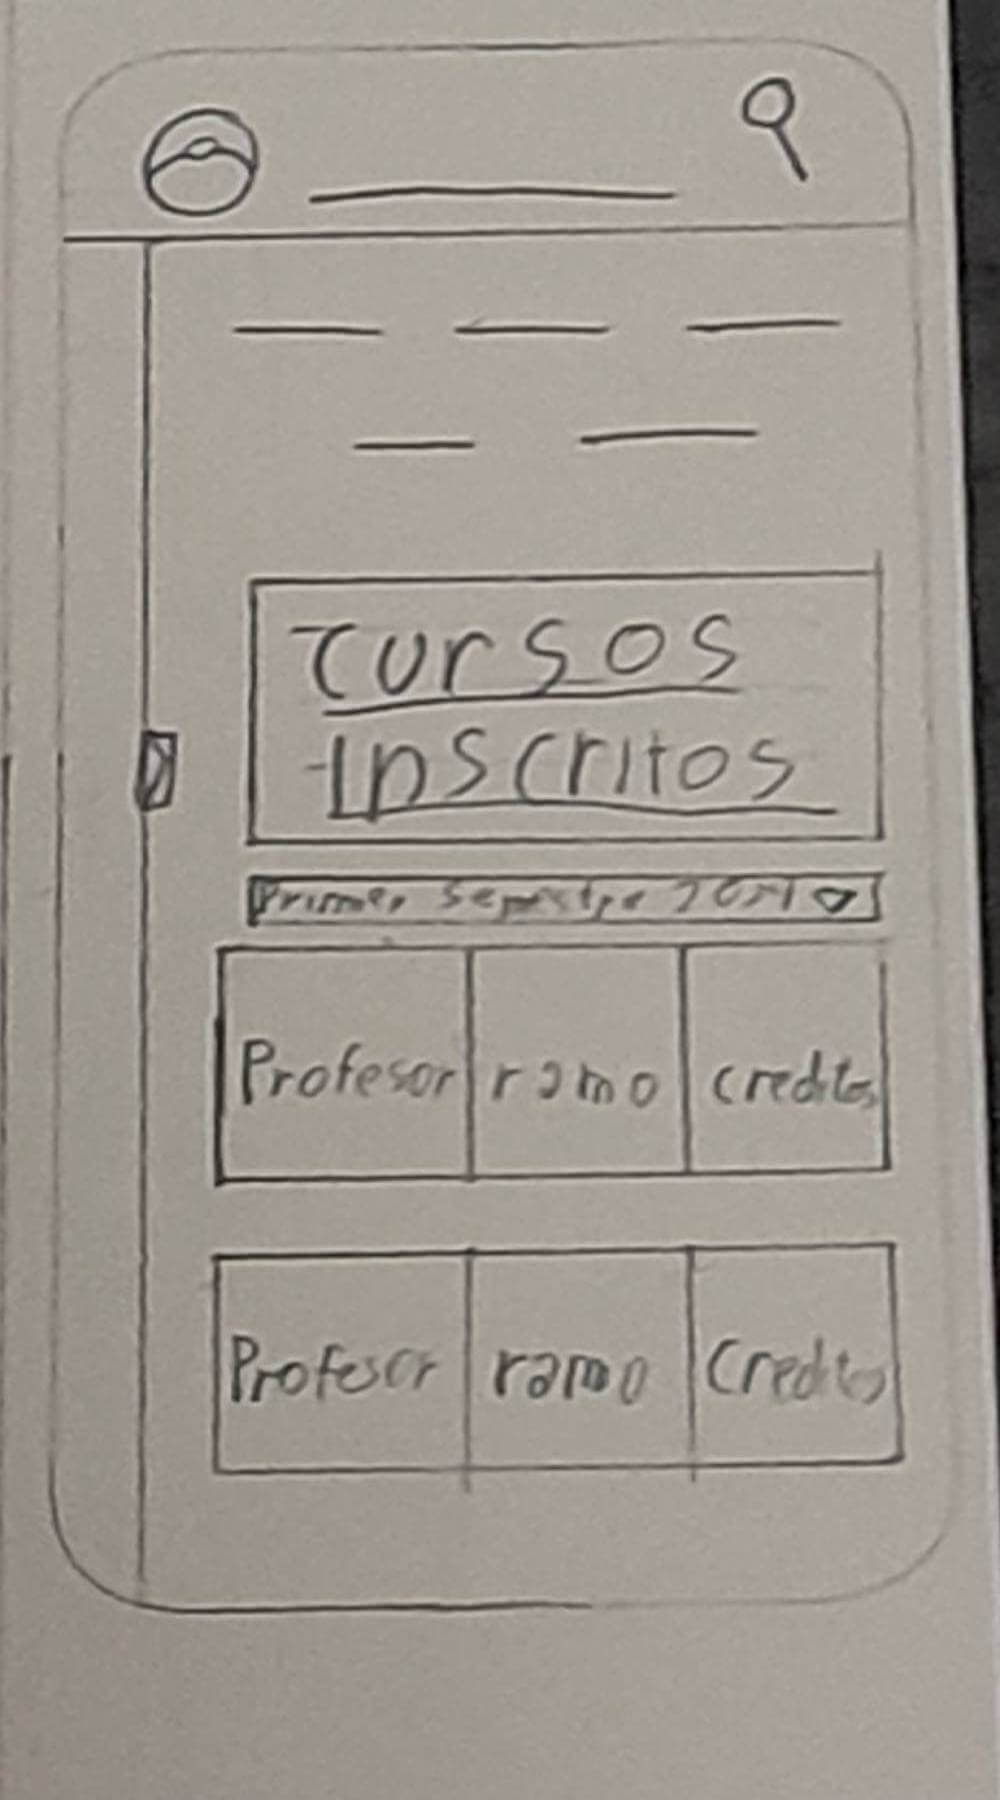 Cursos
Inscritos
Primer Semestre
Profesor ramo creditos
Profesor ramo Creditos